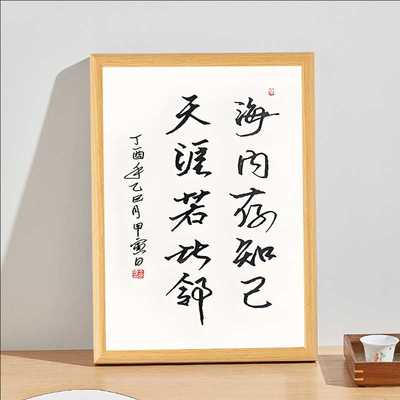 海内存知己
天涯若比邻
丁酉年乙巳月甲寅日